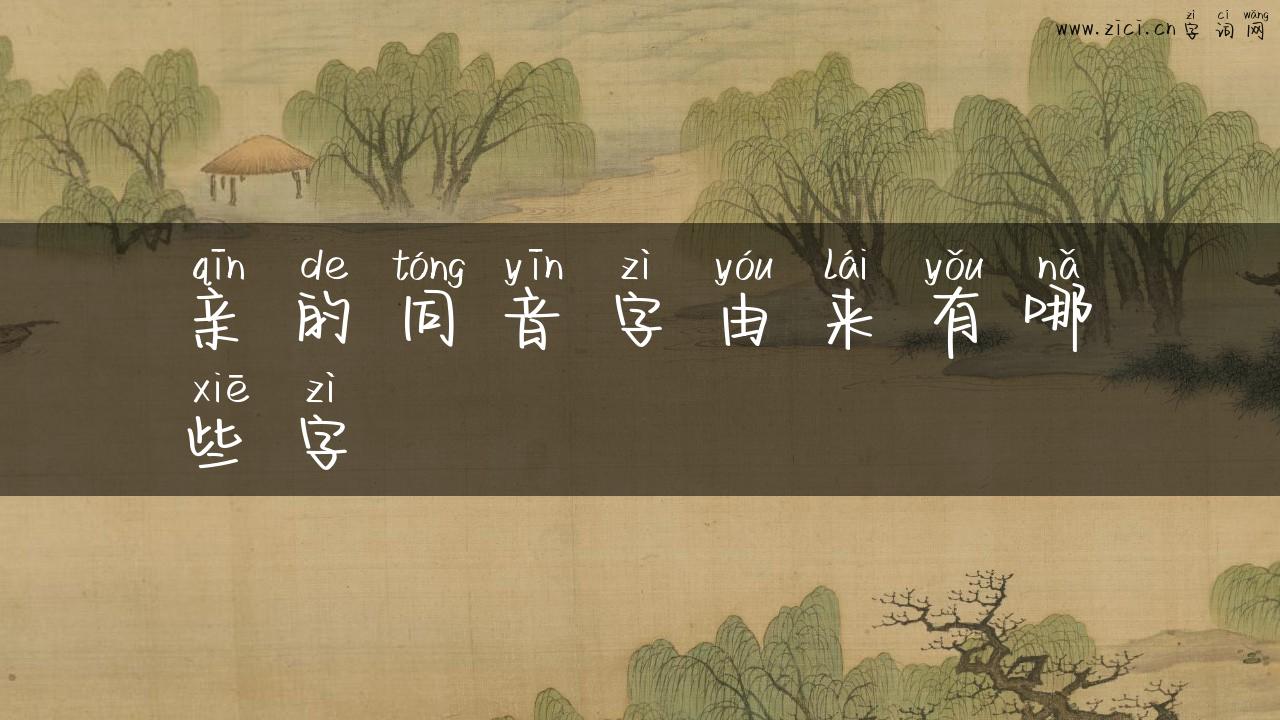 zì cí wǎng
www.zici.cn 字词网
qīn de tóng yīn zì yóu lái yǒu nǎ
亲的同音字由来有哪
xiē zì
些字